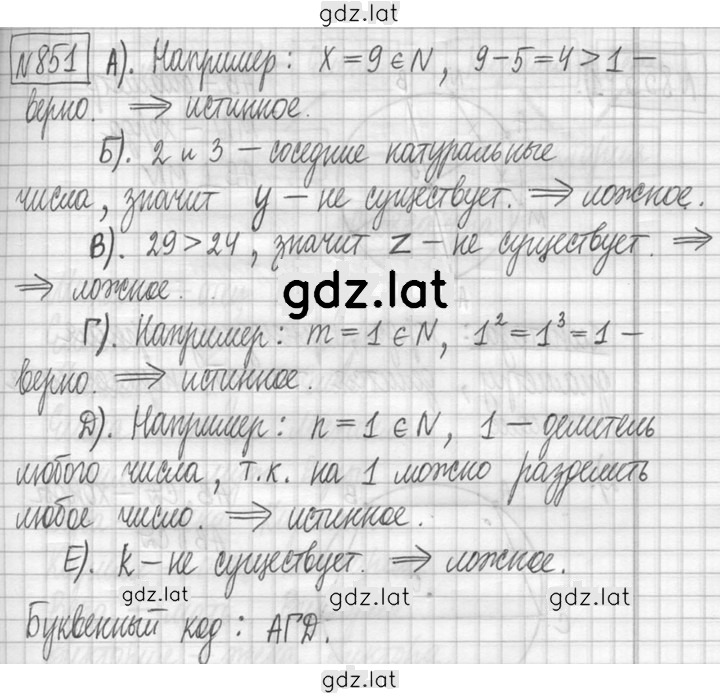 gdz.lat
№851 А). Например: x = 9 ∈ N, 9 - 5 = 4 > 1 —
верно. ⟹ истинное.
Б). 2 и 3 — соседние натуральные
числа, значит y — не существует. ⟹ ложное.
В). 29 > 24, значит z — не существует. ⟹
⟹ ложное.
gdz.lat
Г). Например: m = 1 ∈ N, 1² = 1³ = 1 —
верно. ⟹ истинное.
Д). Например: n = 1 ∈ N, 1 — делитель
любого числа, т.к. на 1 можно разделить
любое число. ⟹ истинное.
Е). k - не существует. ⟹ ложное.
gdz.lat gdz.lat
Буквенный код: АГД.
gdz.lat